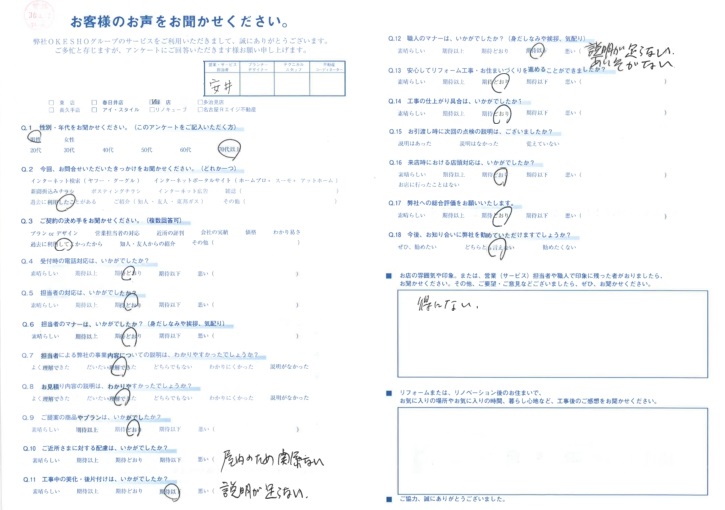 お客様のお声をお聞かせください。
弊社OKESHOグループのサービスをご利用いただきまして、誠にありがとうございます。
ご多忙と存じますが、アンケートにご回答いただきます様お願い申し上げます。
安井
東店 春日井店 店 多治見店
アイ・スタイル リノキューブ 名古屋ネミイン不動産
Q.1 性別・年代をお聞かせください。(このアンケートをご記入いただく方)
男性 女性
20代 30代 40代 50代 60代 70代以上
Q.2 今回、お問合せいただいたきっかけをお聞かせください。(どれか一つ)
インターネット検索(ヤフー・グーグル) インターネットポータルサイト(ホームプロ・スーモ・アットホーム)
新聞折込みチラシ ポスティングチラシ インターネット広告 雑誌( )
過去に利用したことがある ご紹介(知人・友人・ ) その他( )
Q.3 ご契約の決め手をお聞かせください。(複数回答可)
プラン or デザイン 営業担当者の対応 近所の評判 会社の実績 価格 わかり易さ
過去に利用してよかったから 知人・友人からの紹介 その他( )
Q.4 受付時の電話対応は、いかがでしたか?
素晴らしい 期待以上 期待どおり 期待以下 悪い( )
Q.5 担当者の対応は、いかがでしたか?
素晴らしい 期待以上 期待どおり 期待以下 悪い( )
Q.6 担当者のマナーは、いかがでしたか?(身だしなみや挨拶、気配り)
素晴らしい 期待以上 期待どおり 期待以下 悪い( )
Q.7 担当者による弊社の事業内容についての説明は、わかりやすかったでしょうか?
よく理解できた だいたい理解できた どちらでもない わかりにくかった 説明がなかった
Q.8 お見積り内容の説明は、わかりやすかったでしょうか?
よく理解できた だいたい理解できた どちらでもない わかりにくかった 説明がなかった
Q.9 ご提案の商品やプランは、いかがでしたか?
素晴らしい 期待以上 期待どおり 期待以下 悪い( )
Q.10 ご近所さまに対する配慮は、いかがでしたか?
素晴らしい 期待以上 期待どおり 期待以下 悪い( 屋内のため関係ない
Q.11 工事中の美化・後片付けは、いかがでしたか?
素晴らしい 期待以上 期待どおり 期待以下 悪い( 説明が足らない.
Q.12 職人のマナーは、いかがでしたか?(身だしなみや挨拶、気配り)
素晴らしい 期待以上 期待どおり 期待以下 悪い( 説明が足らない.
あいそがない
Q.13 安心してリフォーム工事・お住まいづくりを進めることができましたか?
素晴らしい 期待以上 期待どおり 期待以下 悪い( )
Q.14 工事の仕上がり具合は、いかがでしたか?
素晴らしい 期待以上 期待どおり 期待以下 悪い( )
Q.15 お引渡し時に次回の点検の説明は、ございましたか?
説明はあった 説明はなかった 覚えていない
Q.16 来店時における店頭対応は、いかがでしたか?
素晴らしい 期待以上 期待どおり 期待以下 悪い( )
お店に行ったことはない
Q.17 弊社への総合評価をお願いいたします。
素晴らしい 期待以上 期待どおり 期待以下 悪い( )
Q.18 今後、お知り合いに弊社を勧めていただけますでしょうか?
ぜひ、勧めたい どちらとも言えない 勧めたくない
■ お店の雰囲気や印象、または、営業(サービス)担当者や職人で印象に残った者がおりましたら、
お聞かせください。その他、ご要望・ご意見などございましたら、ぜひ、お聞かせください。
得にない.
■ リフォームまたは、リノベーション後のお住まいで、
お気に入りの場所やお気に入りの時間、暮らし心地など、工事後のご感想をお聞かせください。
■ ご協力、誠にありがとうございました。